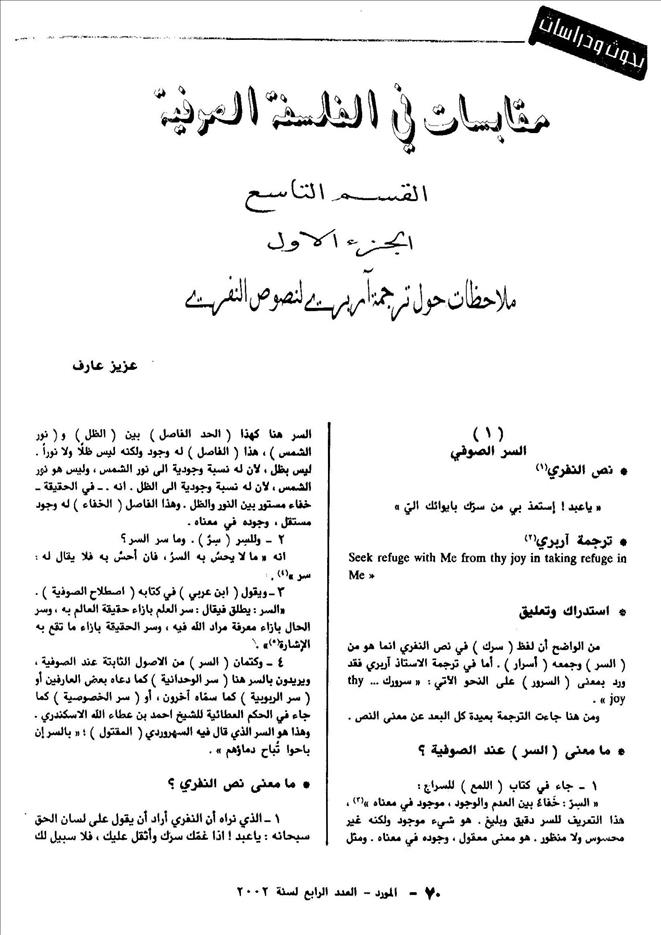 بحوث ودراسات
مقابسات في الفلسفة الصوفية
القسم التاسع
الجزء الاول
ملاحظات حول ترجمة آربري لنصوص النفري
عزيز عارف
( ١ )
السر الصوفي
* نص النفري(١)
« ياعبد ! إستعذ بي من سرّك بايوائك اليّ »
* ترجمة آربري(٢)
Seek refuge with Me from thy joy in taking refuge in
Me »
* استدراك وتعليق
من الواضح أن لفظ ( سرك ) في نص النفري انما هو من
( السر ) وجمعه ( أسرار ) . أما في ترجمة الاستاذ آربري فقد
ورد بمعنى ( السرور ) على النحو الآتي : « سرورك ... thy
joy » .
ومن هنا جاءت الترجمة بعيدة كل البعد عن معنى النص .
* ما معنى ( السر ) عند الصوفية ؟
١ - جاء في كتاب ( اللمع ) للسراج :
« السِرّ : خَفاءٌ بين العدم والوجود ، موجود في معناه »(٣) ،
هذا التعريف للسر دقيق وبليغ . هو شيء موجود ولكنه غير
محسوس ولا منظور . هو معنى معقول ، وجوده في معناه . ومثل
السر هنا كهذا ( الحد الفاصل ) بين ( الظل ) و ( نور
الشمس ) ، هذا ( الفاصل ) له وجود ولكنه ليس ظلًا ولا نوراً .
ليس بظل ، لأن له نسبة وجودية الى نور الشمس ، وليس هو نور
الشمس ، لأن له نسبة وجودية الى الظل . انه .. - في الحقيقة -
خفاء مستور بين النور والظل . وهذا الفاصل ( الخفاء ) له وجود
مستقل ، وجوده في معناه .
٢ - وللسِر ( سِرٌ ) . وما سر السر ؟
انه « ما لا يحسّ به السرّ ، فان أحسّ به فلا يقال له :
سر »(٤) .
٣ - ويقول ( ابن عربي ) في كتابه ( اصطلاح الصوفية ) .
«السر : يطلق فيقال : سر العلم بازاء حقيقة العالم به ، وسر
الحال بازاء معرفة مراد الله فيه ، وسر الحقيقة بازاء ما تقع به
الإشارة(٥)» .
٤ - وكتمان ( السر ) من الاصول الثابتة عند الصوفية ،
ويريدون بالسر هنا ( سر الوحدانية ) كما دعاه بعض العارفين أو
( سر الربوبية ) كما سمّاه آخرون ، أو ( سر الخصوصية ) كما
جاء في الحكم العطائية للشيخ احمد بن عطاء الله الاسكندري .
وهذا هو السر الذي قال فيه السهروردي ( المقتول ) : « بالسر إن
باحوا تُباح دماؤهم »
* ما معنى نص النفري ؟
١ - الذي نراه أن النفري أراد أن يقول على لسان الحق
سبحانه : ياعبد ! اذا غمّك سرّك وأثقل عليك ، فلا سبيل لك
٧٠ - المورد - العدد الرابع لسنة ٢٠٠٢